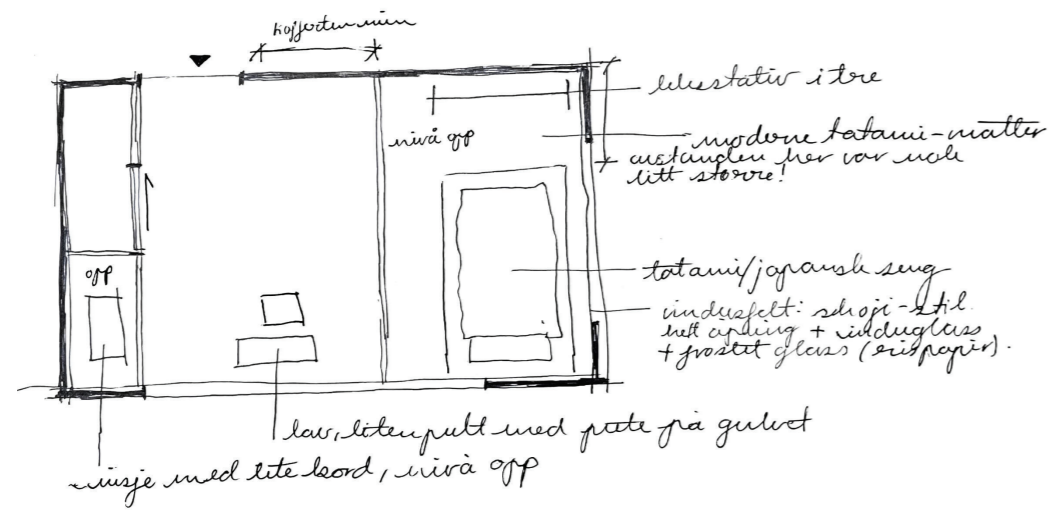 kofferten min
klesstativ i tre
nivå opp
moderne tatami-matter
avstanden her var nok
litt større!
opp
tatami/japansk seng
vindusfelt: shoji-stil.
helt åpning + vindusglass
+ frostet glass (rispapir).
lav, liten pult med pute på gulvet
nisje med lite bord, nivå opp